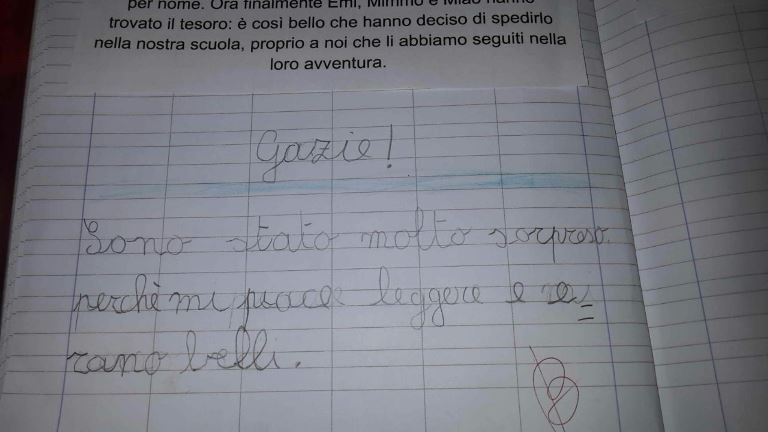 per nome. Ora finalmente Emi, Mimmo e Miao hanno
trovato il tesoro: è così bello che hanno deciso di spedirlo
nella nostra scuola, proprio a noi che li abbiamo seguiti nella
loro avventura.
Gazie!
Sono stato molto sorpreso
perchè mi piace leggere e
rano belli.